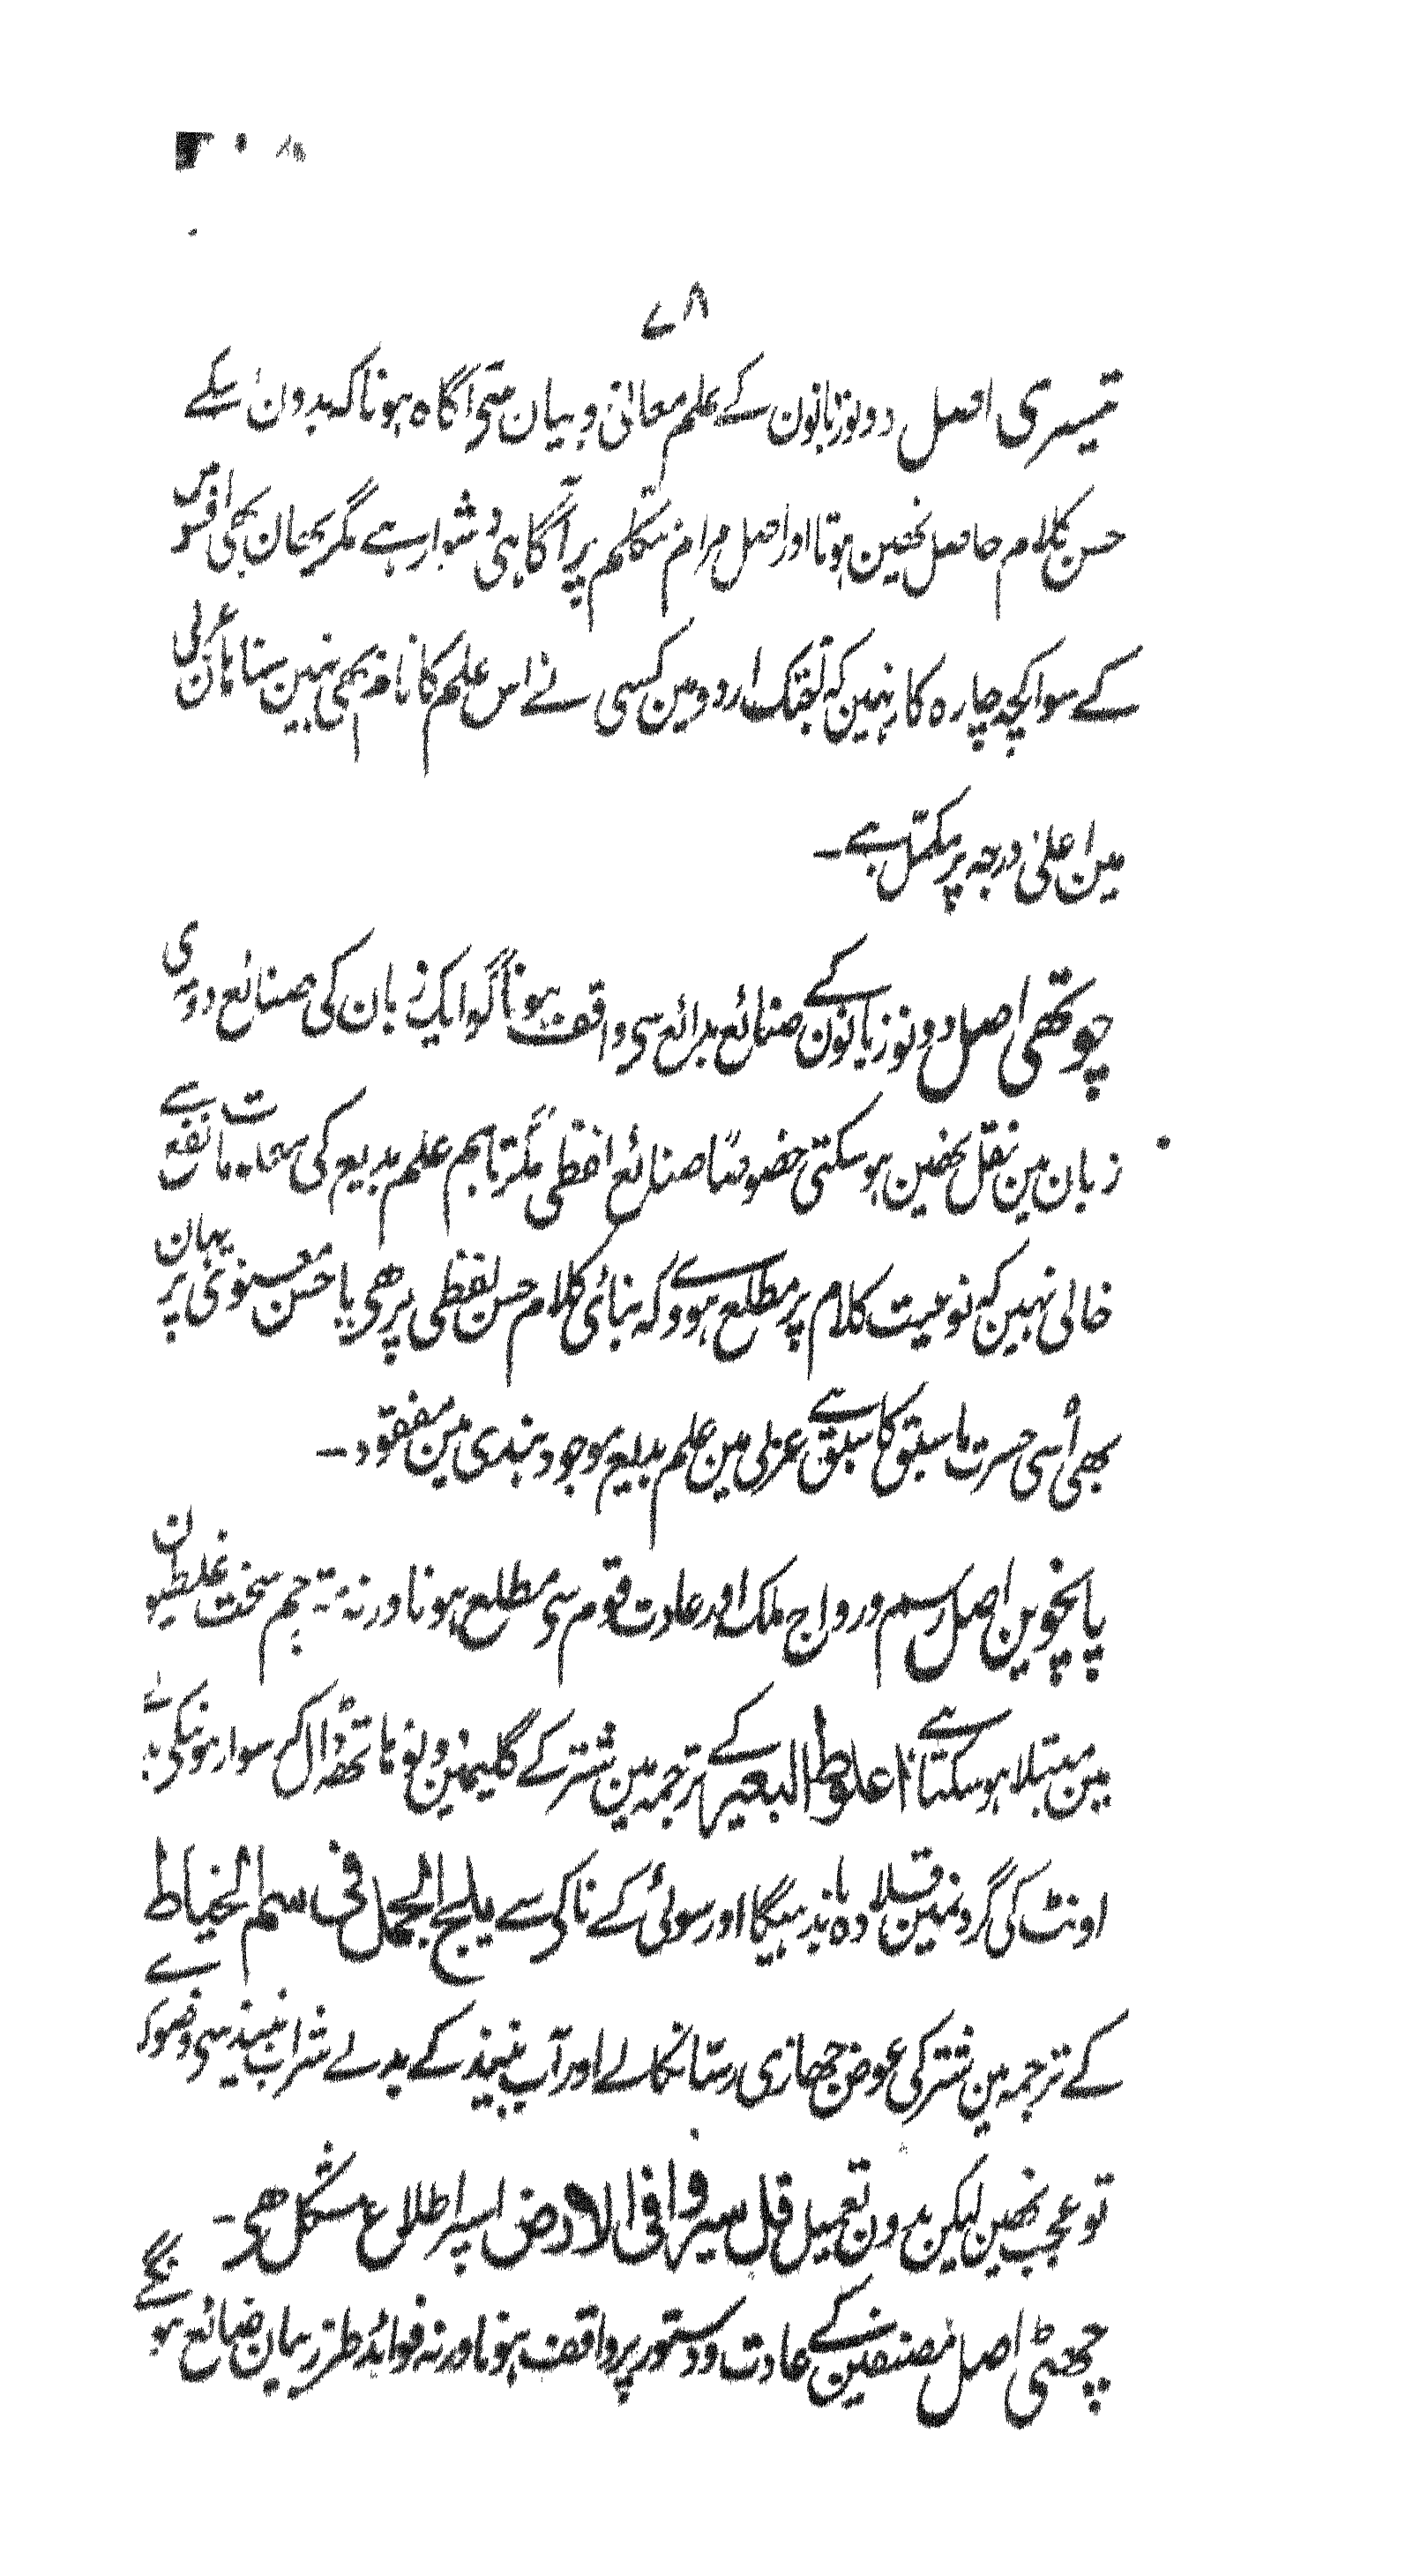 ۷۸
تیسری اصل دونوزبانون کے علم معانی و بیان سی آگاہ ہونا کہ بدون اسکے
حسن کلام حاصل نھین ہوتا اور اصل مرام متکلم پر آگاہی دشوار ہے مگر یھان بھی افسوس
کے سوا کچھ چارہ کار نہین کہ ابتک اردو مین کسی نے اس علم کا نام بھی نہین سنا ہان عربی
مین اعلیٰ درجہ پر مکمّل ہے۔
چوتھی اصل دونوزبانون کے صنائع بدائع سی واقف ہونا گو ایک زبان کی صنائع دوسری
زبان مین نقل نھین ہوسکتی خصوصًا صنائع لفظی مگر تاہم علم بدیع کی مہارت نفع سے
خالی نہین کہ نوعیت کلام پر مطلع ہووے کہ بنائی کلام حسن لفظی پر ھی یا حسن معنوی پر یہان
بھی اُسی حسرت ماسبق کا سبق ہے عربی مین علم بدیع موجود ہندی مین مفقود۔
پانچوین اصل رسم ورواج ملک اور عادت قوم سی مطلع ہونا ورنہ مترجم سخت غلطیون
مین مبتلا ہوسکتا ہے اعلوط البعیر کے ترجمہ مین شتر کے گلیمین دونو ہاتھ ڈال کر سوار ہونیکی
اونٹ کی گردنمین قلادہ باندہیگا اور سوئی کے ناکی سے یلج الجمل فی سم الخیاط
کے ترجمہ مین شتر کی عوض جھازی رسّا نکالے اور آب نبیذ کے بدلے شراب نبیذ سی وضو کرے
تو عجب نھین لیکن بدون تعمیل قل سیروا فی الارض اسپر اطلاع مشکل ھی۔
چھٹی اصل مصنفین کے عادت و دستور پر واقف ہونا ورنہ فوائد طرز بیان ضائع ہونگے